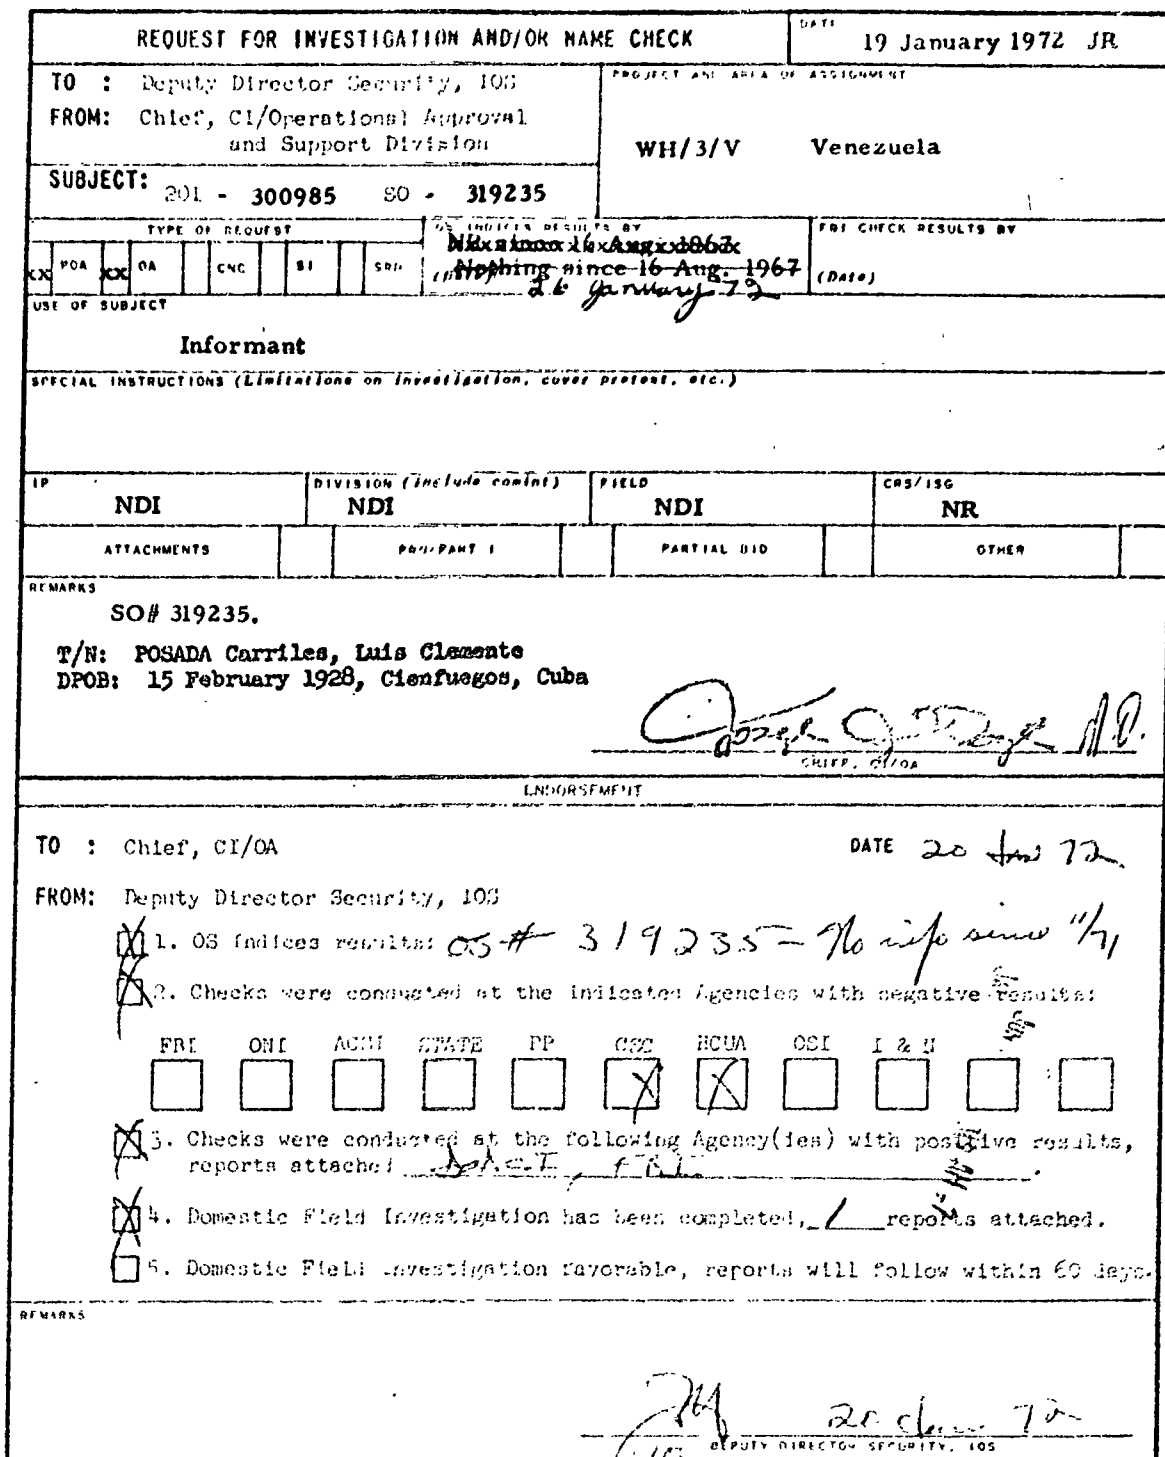 REQUEST FOR INVESTIGATION AND/OR NAME CHECK
DATE
19 January 1972 JR
TO : Deputy Director Security, IOS
FROM: Chief, CI/Operational Approval
and Support Division
PROJECT AND AREA OF ASSIGNMENT
WH/3/V Venezuela
SUBJECT: 201 - 300985 SO - 319235
TYPE OF REQUEST
xx POA xx OA CNC SI SRD
OS INDICES RESULTS BY
Nothing since 16 Aug. 1967
(Date)
26 January 72
FBI CHECK RESULTS BY
(Date)
USE OF SUBJECT
Informant
SPECIAL INSTRUCTIONS (Limitations on investigation, cover pretext, etc.)
IP
NDI
DIVISION (include comint)
NDI
FIELD
NDI
CRS/ISG
NR
ATTACHMENTS
PRO/PART I
PARTIAL BIO
OTHER
REMARKS
SO# 319235.
T/N: POSADA Carriles, Luis Clemente
DPOB: 15 February 1928, Cienfuegos, Cuba
CHIEF, CI/OA
ENDORSEMENT
TO : Chief, CI/OA
DATE 20 Jan 72
FROM: Deputy Director Security, IOS
1. OS Indices results: OS # 319235 - No info since 11/71
2. Checks were conducted at the indicated Agencies with negative results:
FBI ONI ACSI STATE PP CSC HCUA OSI I & N
3. Checks were conducted at the following Agency(ies) with positive results,
reports attached FBI.
4. Domestic Field Investigation has been completed, 1 reports attached.
5. Domestic Field Investigation favorable, reports will follow within 60 days.
REMARKS
20 Jan 72
DEPUTY DIRECTOR SECURITY, IOS